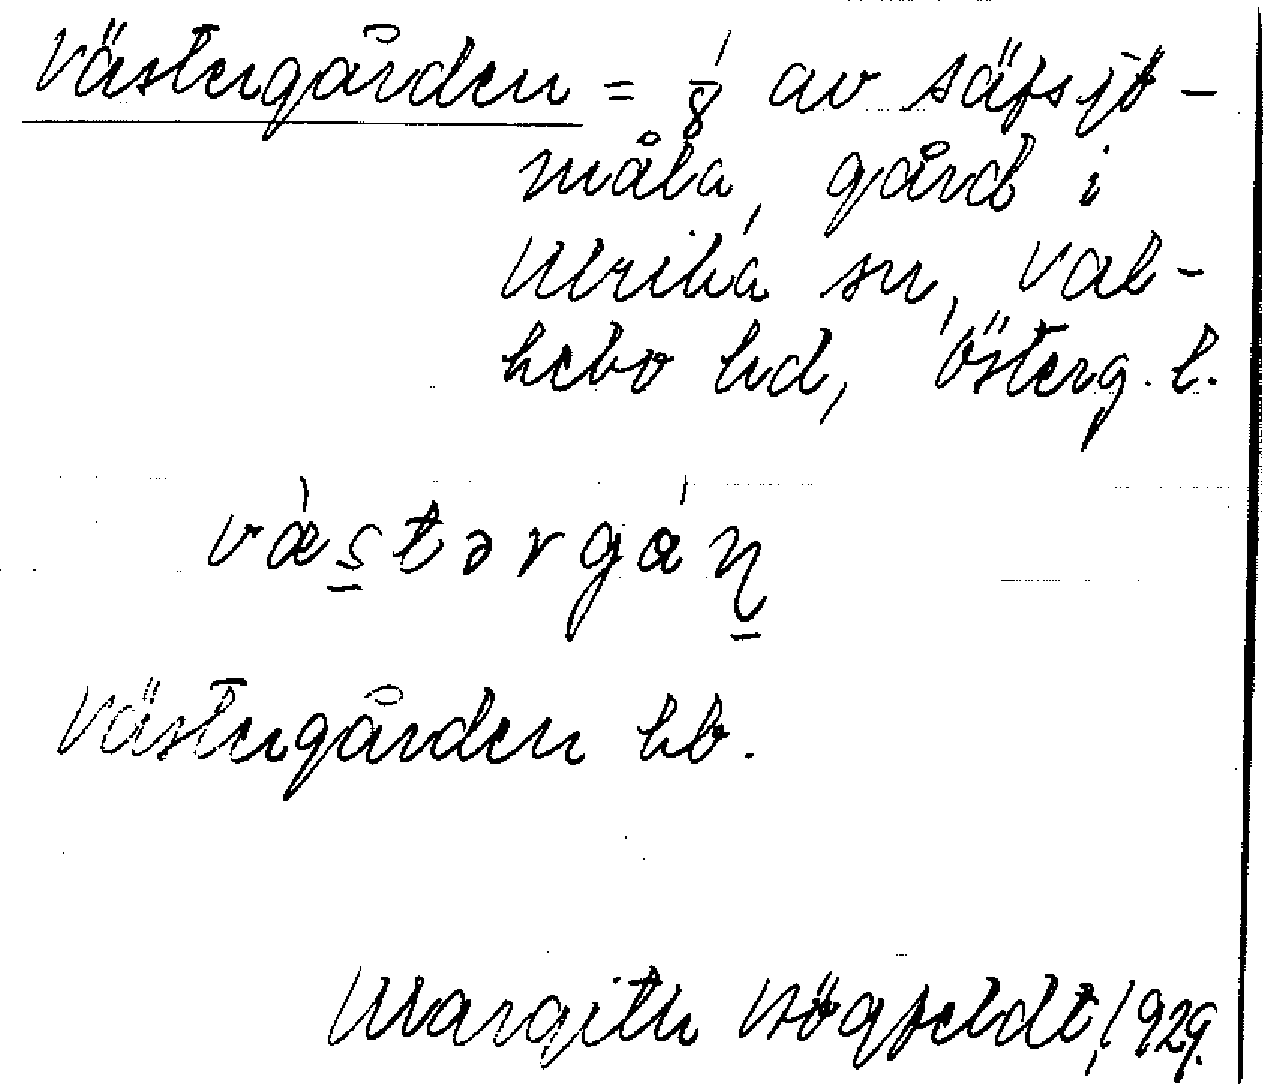 Västergården = 1/8 av Säfsjö-
måla, gård i
Ulrika sn, Val-
kebo hd, Österg. l.
væ̀stərgán̥
Västergården hb.
Margith Högfeldt, 1929.